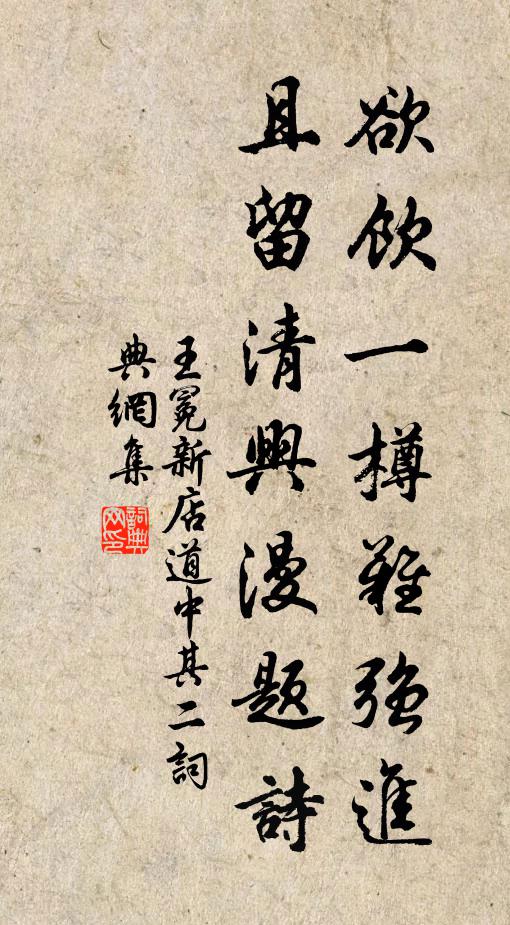 欲飲一樽難強進
且留清興漫題詩
王冕新店道中其二詞
典網集
詞典網印